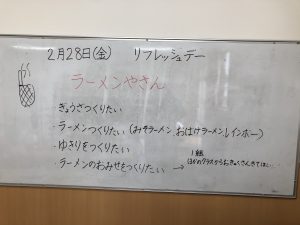 2月28日(金) リフレッシュデー
ラーメンやさん
・ぎょうざつくりたい
・ラーメンつくりたい(みそラーメン おばけラーメン レインボー)
・ゆきりをつくりたい
・ラーメンのおみせをつくりたい → 1組
ほかのクラスからおきゃくさんきてほしい